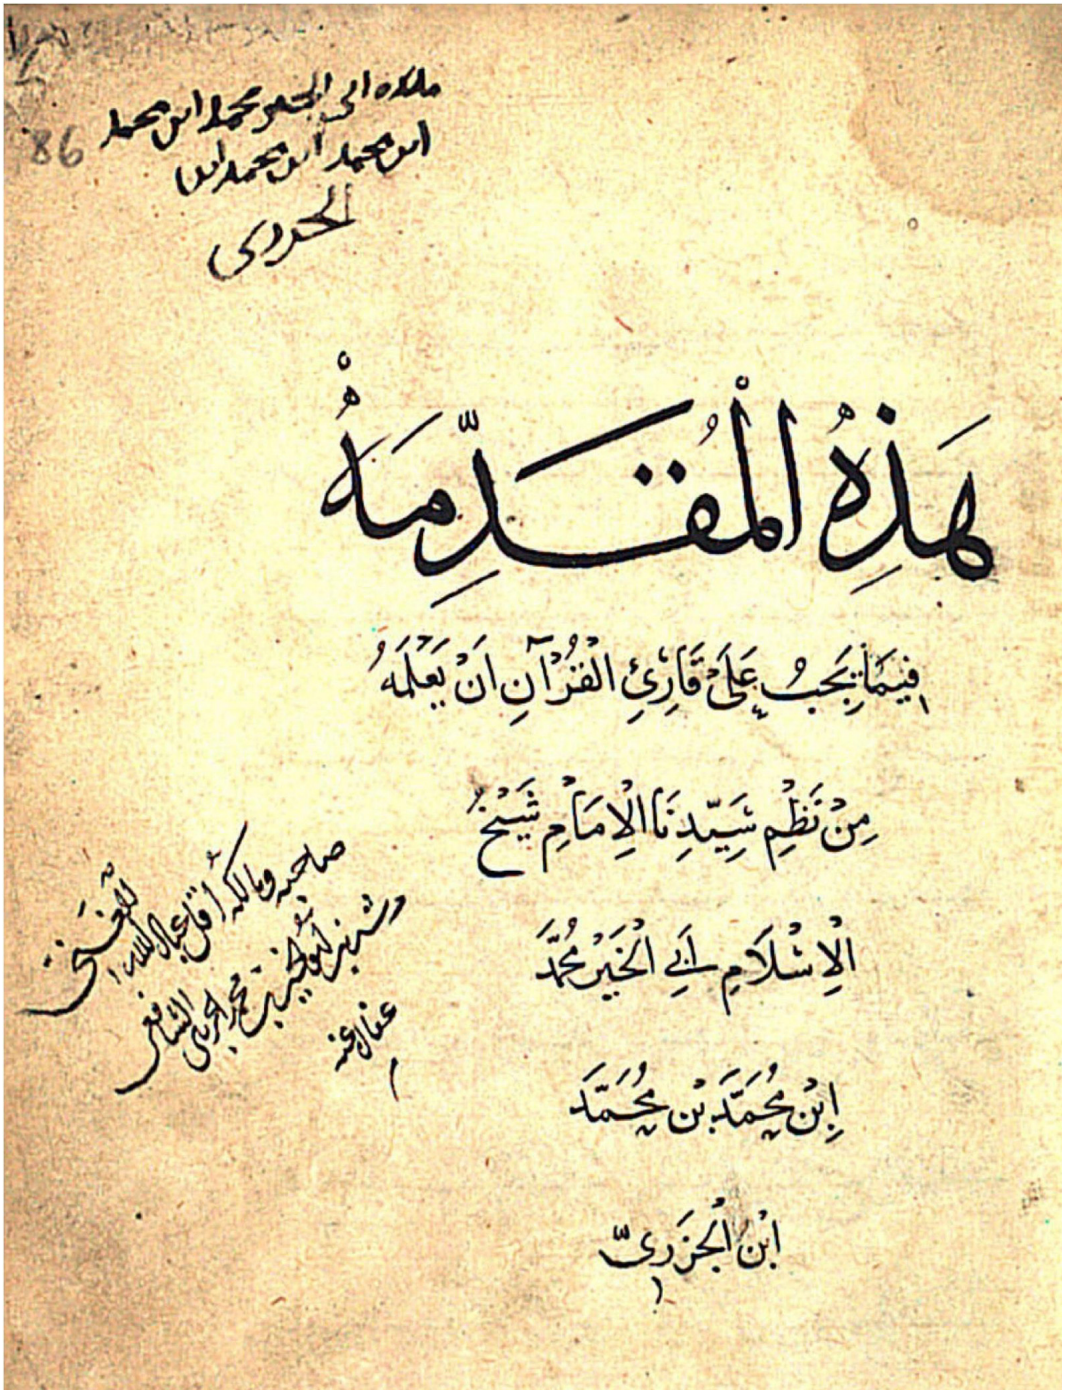 ملكه ابى الخير محمد ابن محمد
ابن محمد ابن محمد ابن
الجزرى
86
هَذِهِ الْمُقَدِّمَهْ
فِيمَا يَجِبُ عَلَى قَارِئِ الْقُرْآنِ اَنْ يَعْلَمَهُ
مِنْ نَظْمِ سَيِّدِنَا الْاِمَامِ شَيْخُ
الْاِسْلَامِ اَبِي الْخَيْرْ مُحَمَّدَ
اِبْنْ مُحَمَّدَ بْن مُحَمَّدَ
ابْن الْجَزَرِىّ
صاحبه ومالكه أقل عبيد الله
الغنى
محمد
الشافعى
عفا الله عنه